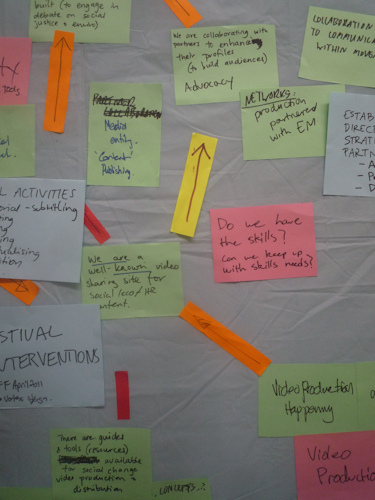 built (to engage in
debate on social
justice + enviro)
We are collaborating with
partners to enhance
their profiles
(to build audiences)
ADVOCACY
COLLABORATION
TO COMMUNICATE
WITHIN
NETWORKS:
production
partnered
with EM
Media
entity.
'Content'
Publishing
Tools
ESTAB
DIREC
STRAT
PARTN
- A
- P
- D
L ACTIVITIES
orial - subtitling
Do we have
the skills?
Can we keep up
with skills needs?
We are a
well-known video
sharing site for
social/eco/HR
content.
STIVAL
NTERVENTIONS
FF April 2011
Video Production
Happening
There are guides
& tools (resources)
available
for social change
video production &
distribution
Video
Productio